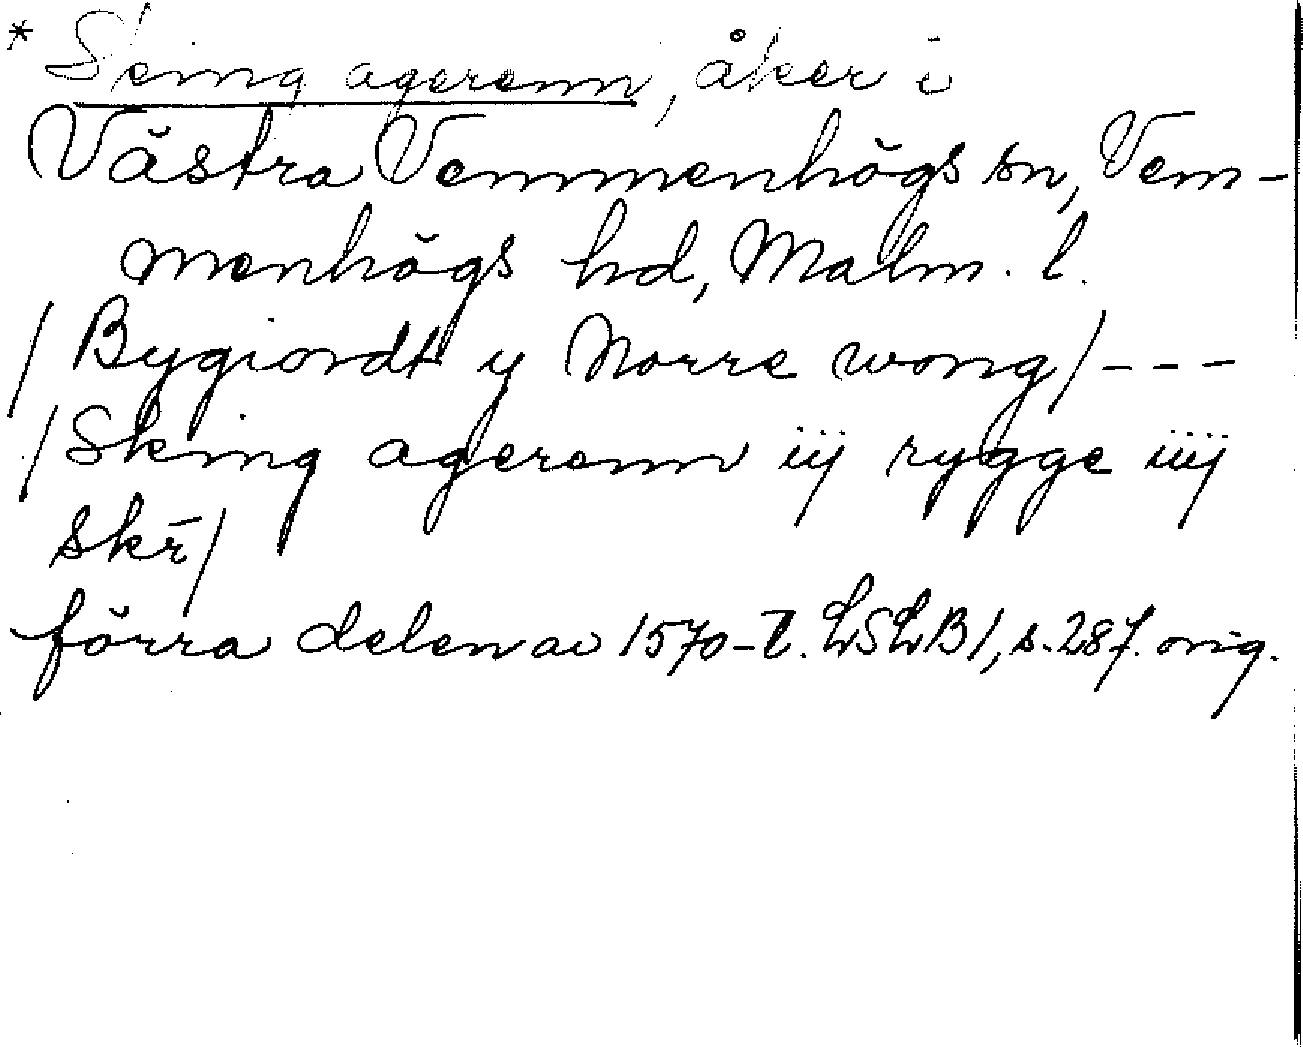 * Sking agerenn, åker i
Västra Vemmenhögs sn, Vem-
menhögs hd, Malm. l.
/Bygiordt y Norre wong/---
/Sking agerenn iij rygge iiij
skr̄/
förra delen av 1570-t. LSLB1, s. 287. orig.